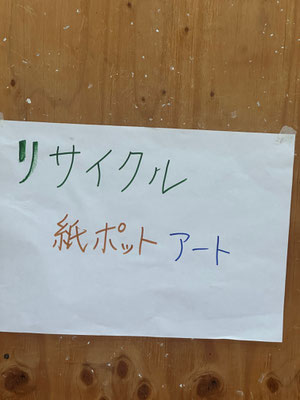 リサイクル
紙ポット アート